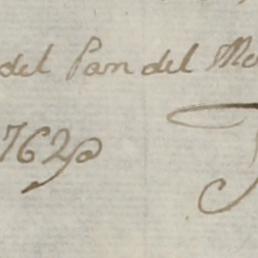 del Pan del Me
762